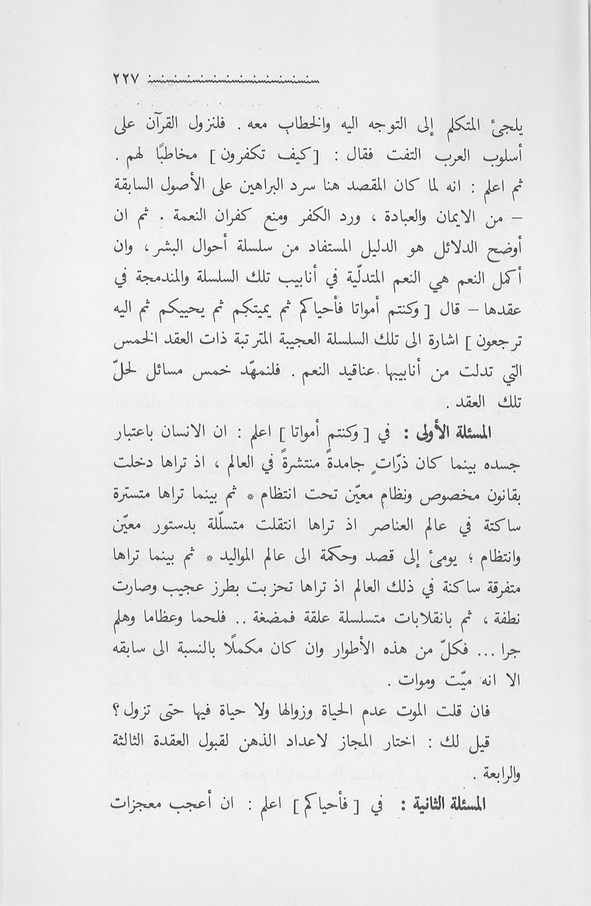 ٢٢٧
يلجئ المتكلم إلى التوجه اليه والخطاب معه . فلنزول القرآن على
أسلوب العرب التفت فقال : [ كيف تكفرون ] مخاطبًا لهم .
ثم اعلم : انه لما كان المقصد هنا سرد البراهين على الأصول السابقة
– من الايمان والعبادة ، ورد الكفر ومنع كفران النعمة . ثم ان
أوضح الدلائل هو الدليل المستفاد من سلسلة أحوال البشر ، وان
أكمل النعم هي النعم المتدلّية في أنابيب تلك السلسلة والمندمجة في
عقدها – قال [ وكنتم أمواتا فأحياكم ثم يميتكم ثم يحييكم ثم اليه
ترجعون ] اشارة الى تلك السلسلة العجيبة المترتبة ذات العقد الخمس
التي تدلت من أنابيبها عناقيد النعم . فلنمهّد خمس مسائل لحلّ
تلك العقد .
المسئلة الأولى : في [ وكنتم أمواتا ] اعلم : ان الانسان باعتبار
جسده بينما كان ذرّاتٍ جامدةً منتشرةً في العالم ، اذ تراها دخلت
بقانون مخصوص ونظامٍ معيّن تحت انتظام * ثم بينما تراها متسترة
ساكتة في عالم العناصر اذ تراها انتقلت متسلّلة بدستور معيّن
وانتظام ؛ يومئ إلى قصد وحكمة الى عالم المواليد * ثم بينما تراها
متفرقة ساكنة في ذلك العالم اذ تراها تحزبت بطرز عجيب وصارت
نطفة ، ثم بانقلابات متسلسلة علقة فمضغة .. فلحما وعظاما وهلم
جرا ... فكلّ من هذه الأطوار وان كان مكملًا بالنسبة الى سابقه
الا انه ميّت وموات .
فان قلت الموت عدم الحياة وزوالها ولا حياة فيها حتى تزول ؟
قيل لك : اختار المجاز لاعداد الذهن لقبول العقدة الثالثة
والرابعة .
المسئلة الثانية : في [ فأحياكم ] اعلم : ان أعجب معجزات